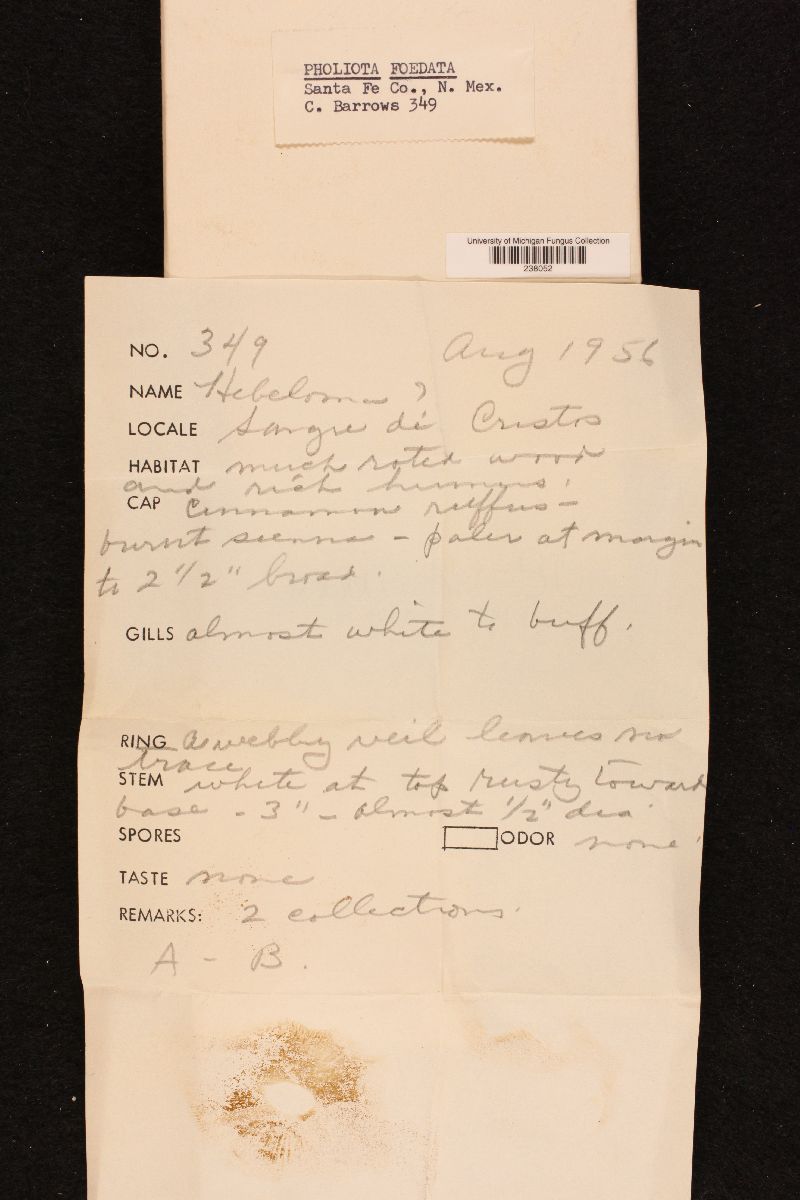 PHOLIOTA FOEDATA
Santa Fe Co., N. Mex.
C. Barrows 349
University of Michigan Fungus Collection
238052
NO. 349 Aug 1956
NAME Hebeloma ?
LOCALE Sangre de Cristos
HABITAT much roted wood
and rich humus.
CAP Cinnamon ruffus -
burnt sienna - paler at margin
to 2 1/2" broad.
GILLS almost white to buff.
RING a webby veil leaves no
trace
STEM white at top rusty toward
base - 3" - almost 1/2" dia.
SPORES ODOR none.
TASTE none
REMARKS: 2 collections.
A - B.